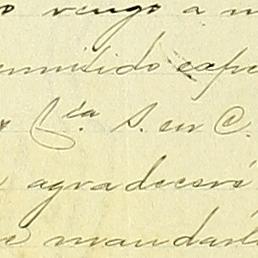 o vengo a m
rmitido expe
Cía S. en C.
agradeceré
e mandarl